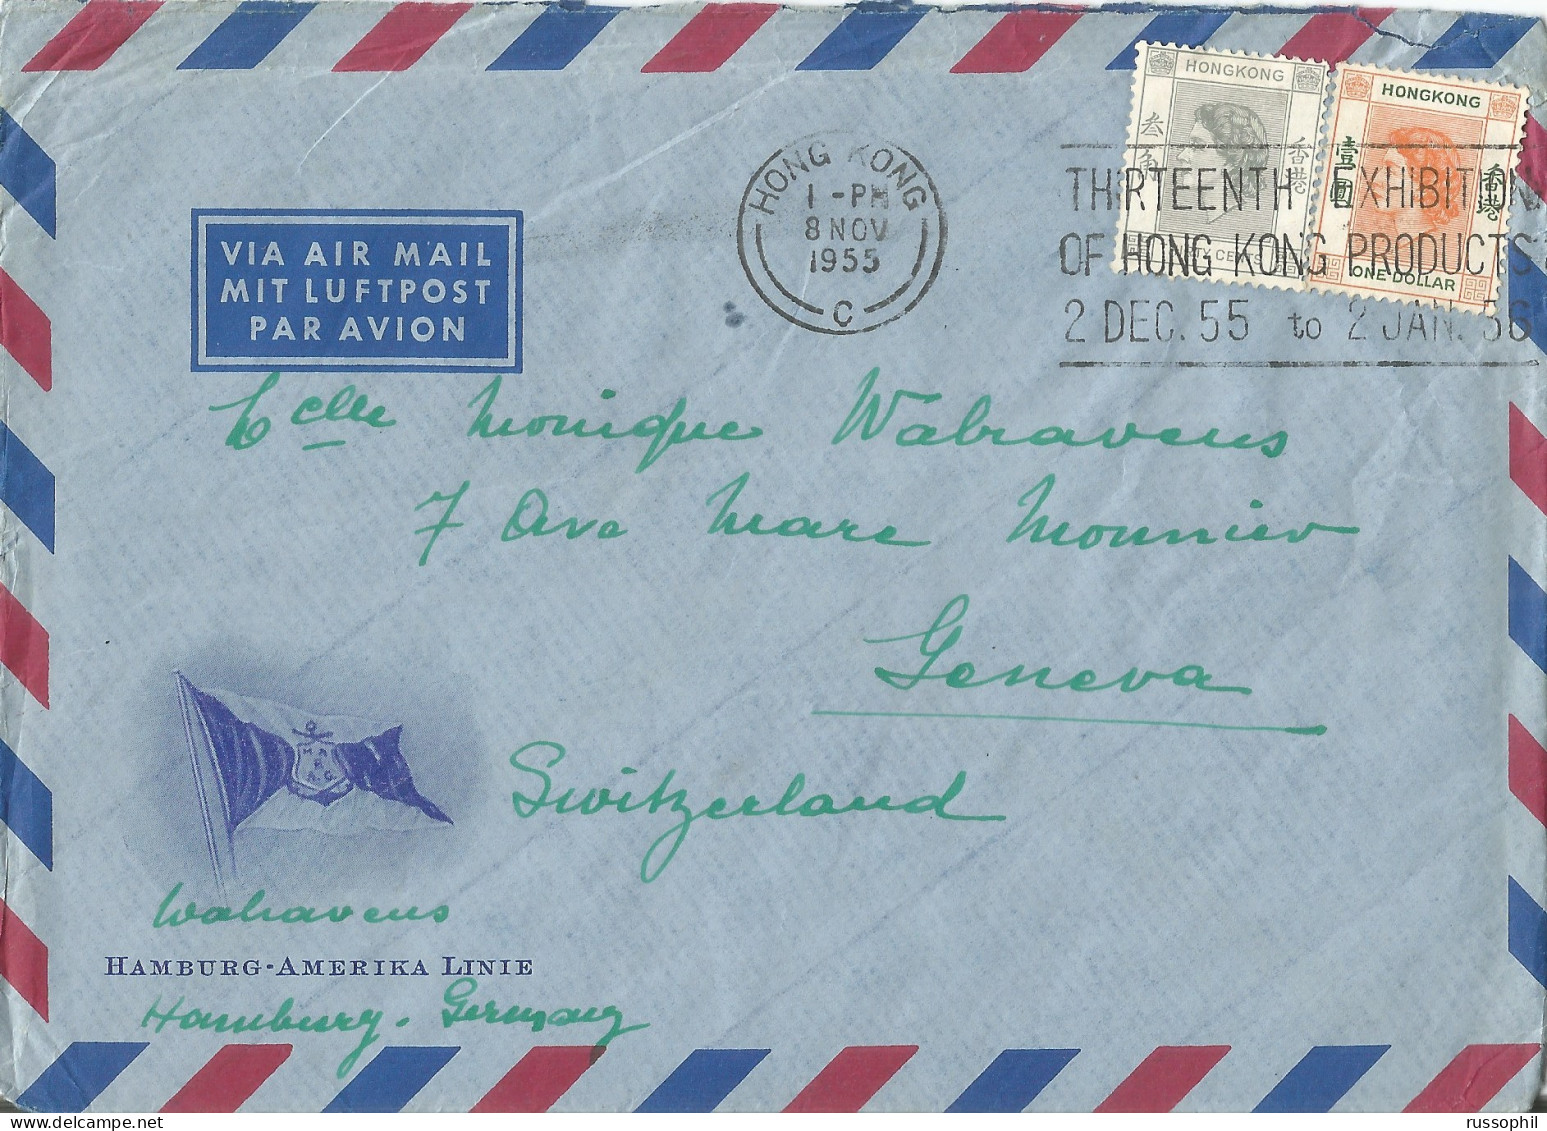 HONGKONG
叁角
香港
CENTS
HONGKONG
壹圓
香港
ONE DOLLAR
HONG KONG
1 - PM
8 NOV
1955
C
THIRTEENTH EXHIBITION
OF HONG KONG PRODUCTS
2 DEC. 55 to 2 JAN. 56
VIA AIR MAIL
MIT LUFTPOST
PAR AVION
Monique Walravens
7 Ave Marc Monnier
Geneva
Switzerland
H A
P
A G
Walravens
HAMBURG-AMERIKA LINIE
Hamburg. Germany
russophil